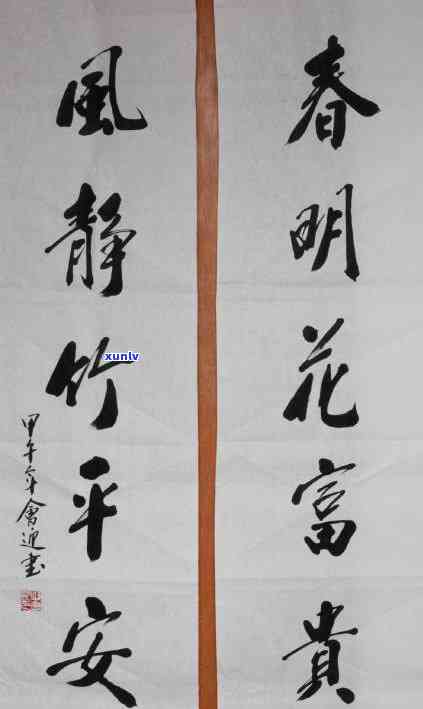 春明花富貴
風静竹平安
甲午年會迎书
xunlv